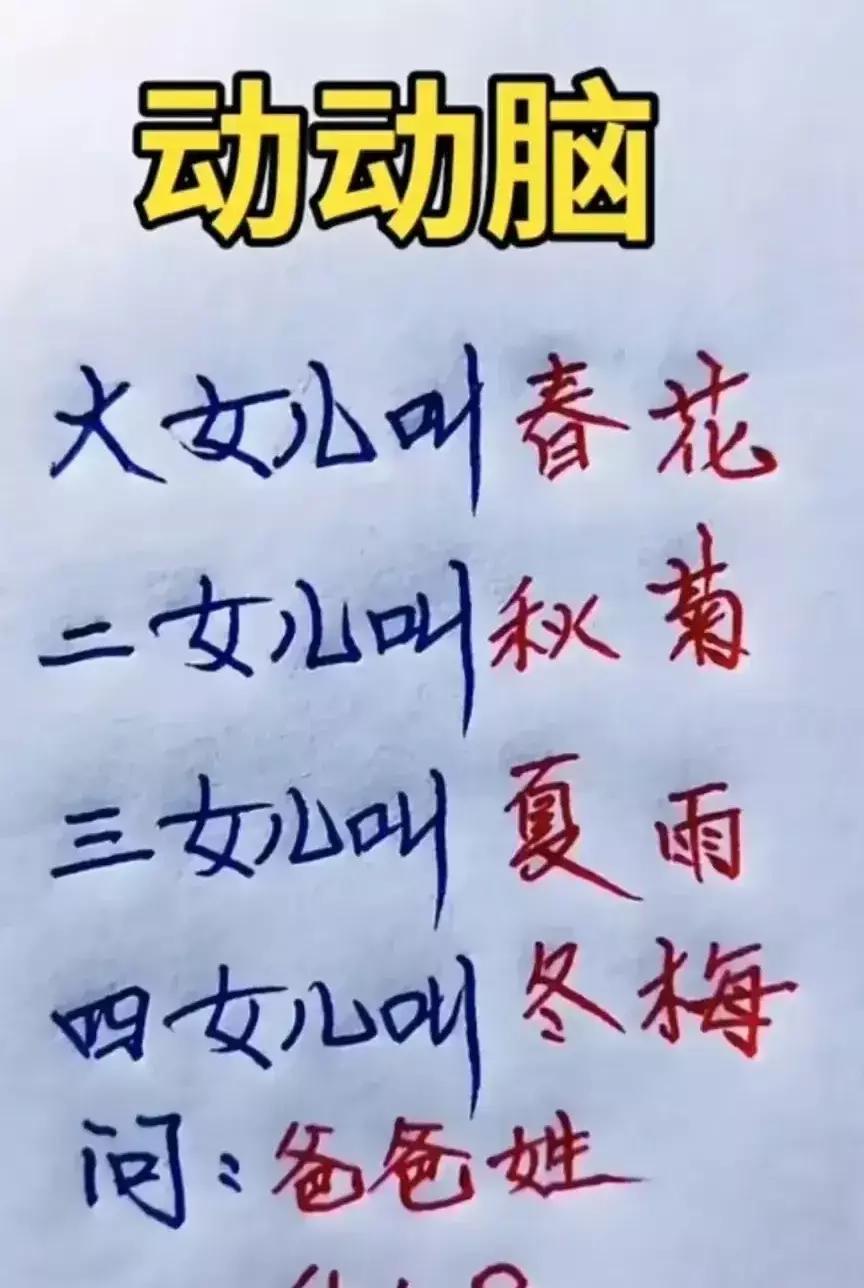 动动脑
大女儿叫春花
二女儿叫秋菊
三女儿叫夏雨
四女儿叫冬梅
问:爸爸姓